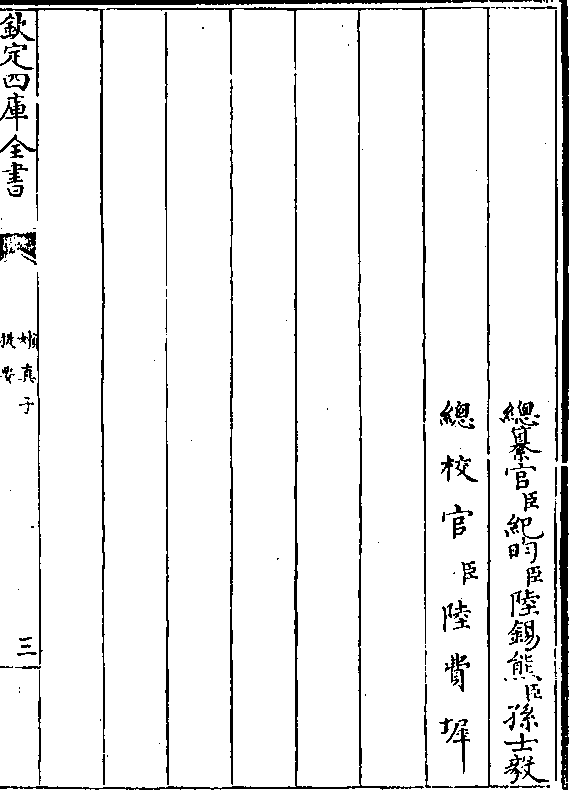 總纂官臣紀昀臣陸錫熊臣孫士毅
總校官臣陸費墀
欽定四庫全書
嬾真子
提要
三